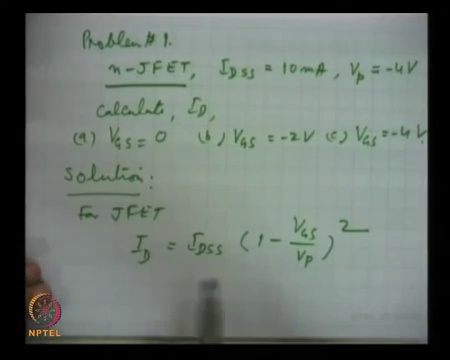 Problem # 1.
n-JFET, I_DSS = 10 mA, V_P = -4V
Calculate, I_D,
(a) V_GS = 0 (b) V_GS = -2V (c) V_GS = -4V.
Solution:
For JFET
I_D = I_DSS (1 - V_GS/V_P)^2
NPTEL